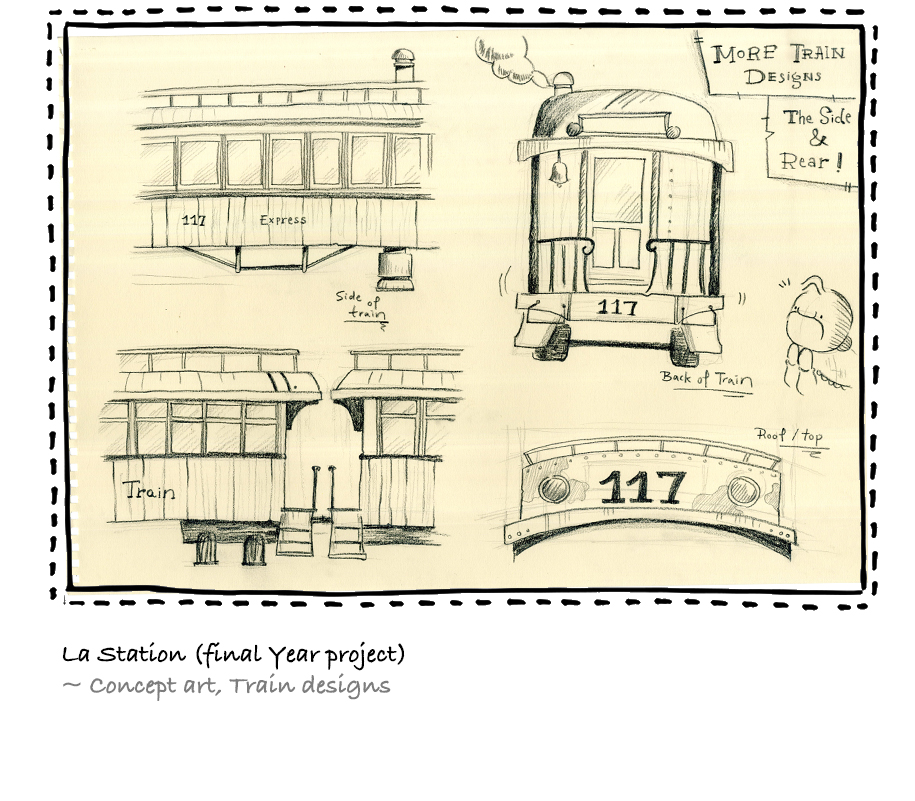 MORE TRAIN
DESIGNS
The Side
&
Rear!
117 Express
Side of
train
117
Back of Train
Train
Roof / top
117
La Station (final Year project)
~ Concept art, Train designs